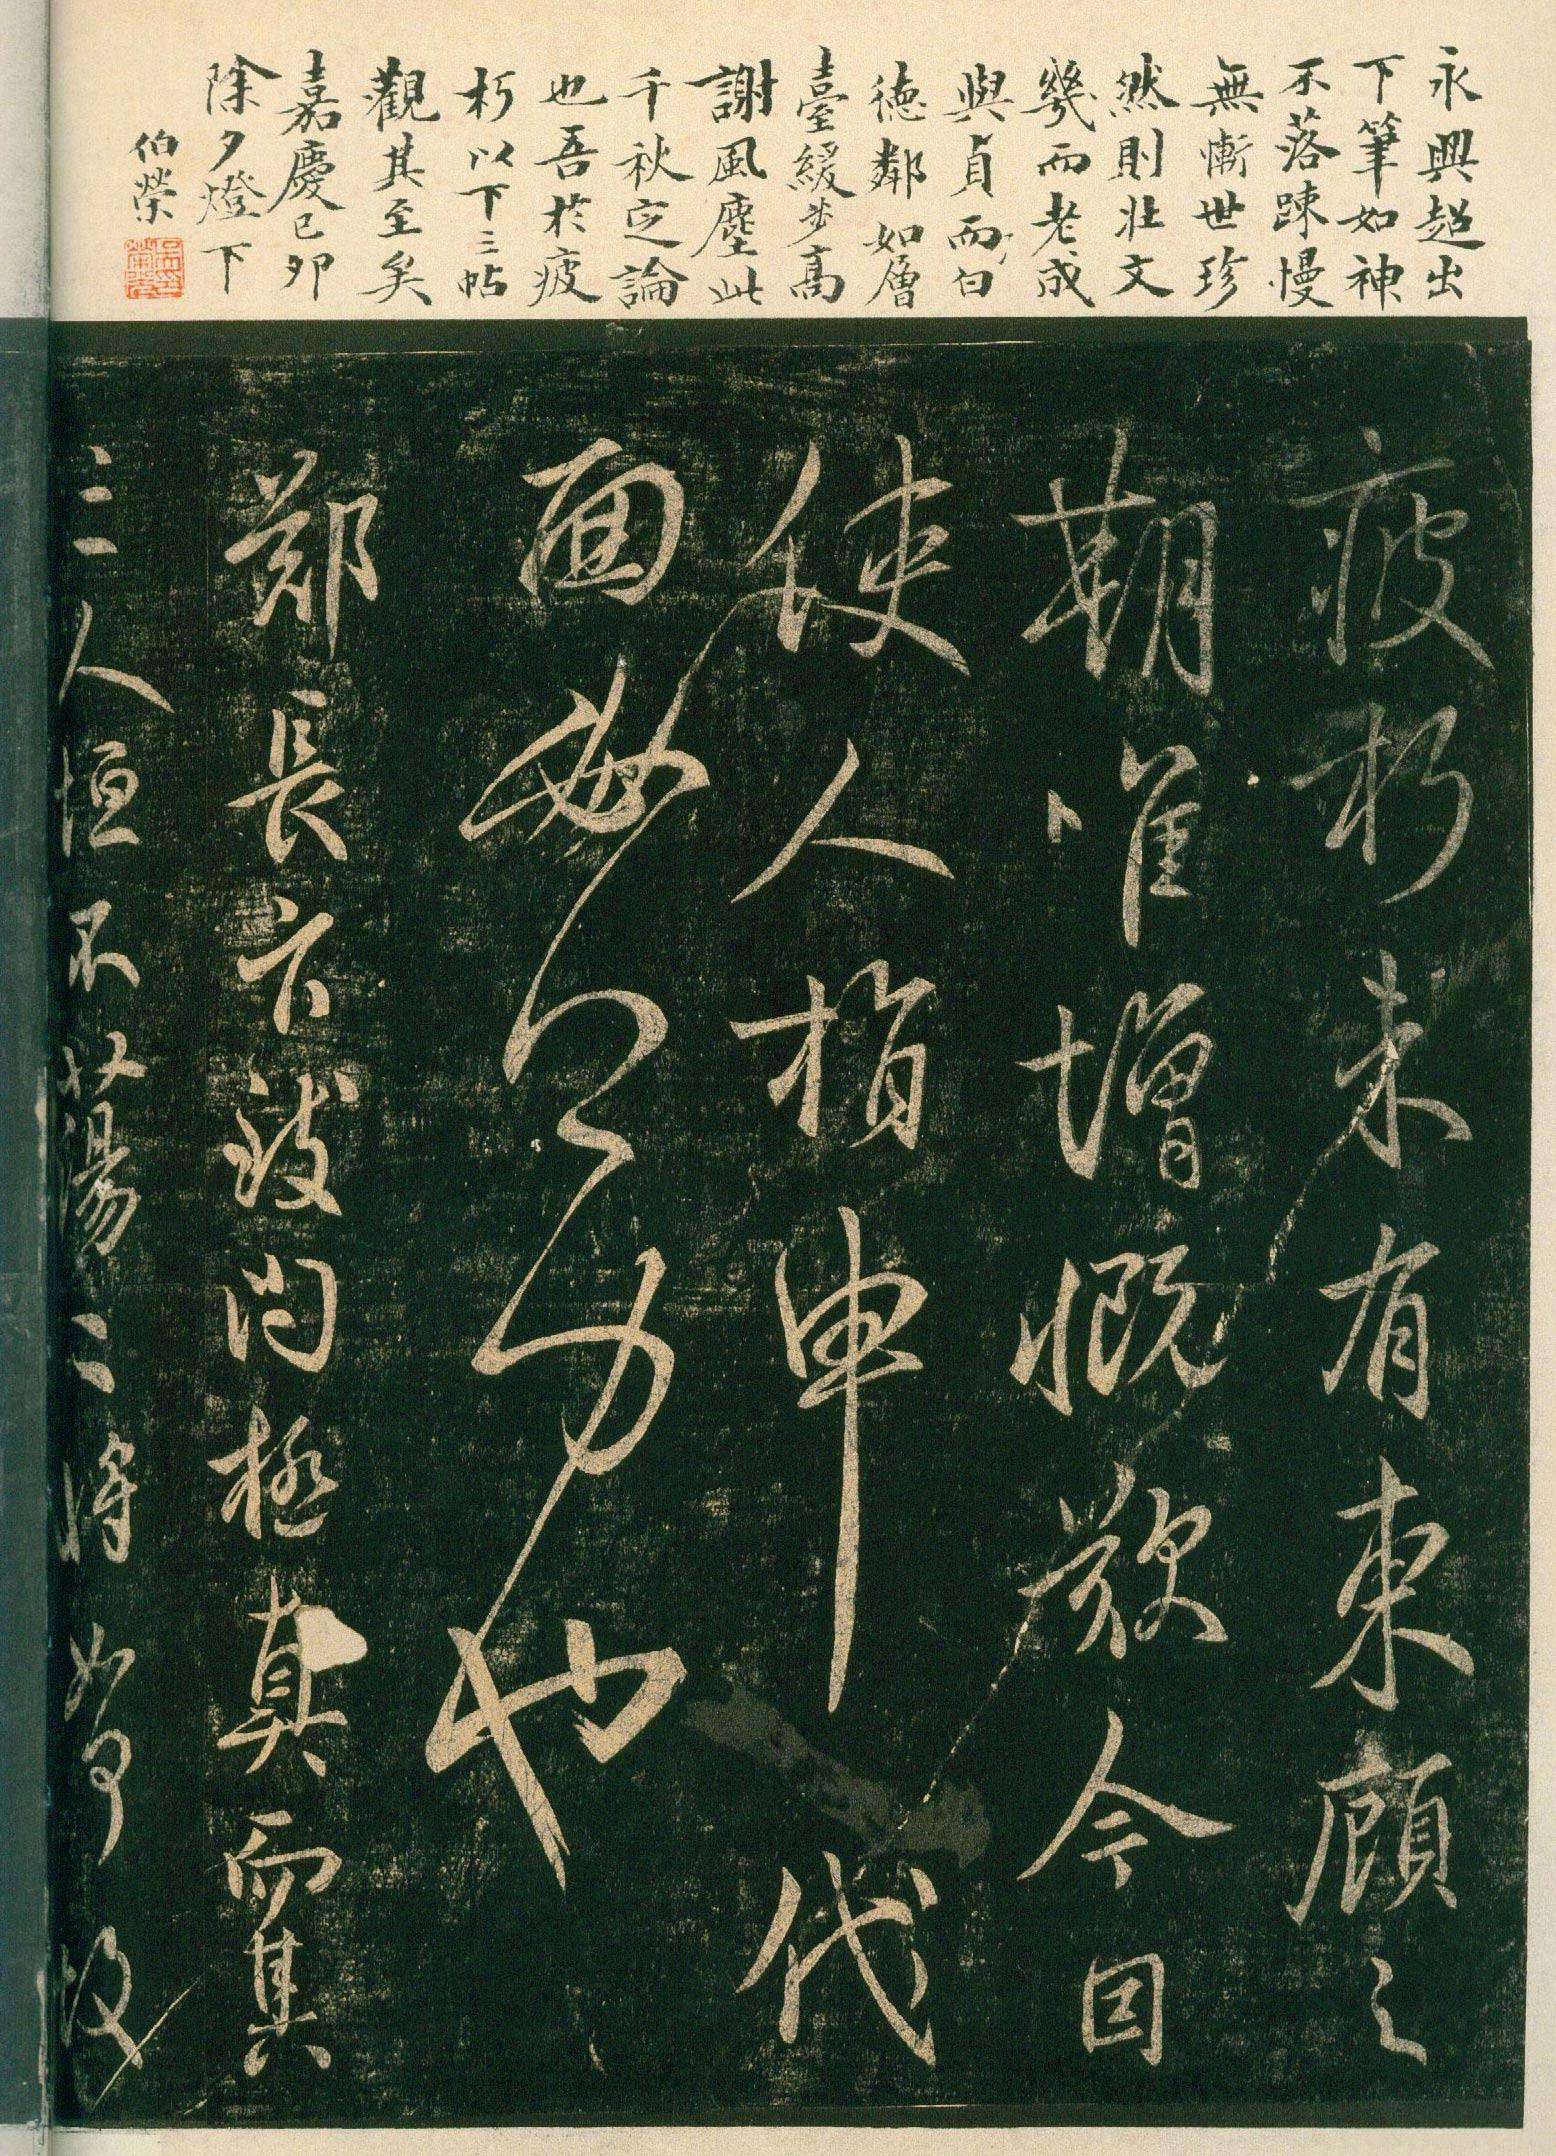 永興超出
下筆如神
不落踈慢
無慚世珍
然則壯文
幾而老成
與貞而白
德鄰如層
臺緩步高
謝風塵此
千秋定論
也吾於疲
朽以下三帖
觀其至矣
嘉慶己卯
除夕燈下
伯榮
疲朽未有東顧之
期唯增慨歎今因
使人指申代
面 也
鄭長官致問極真而其
三人恒不蕩蕩將如何故